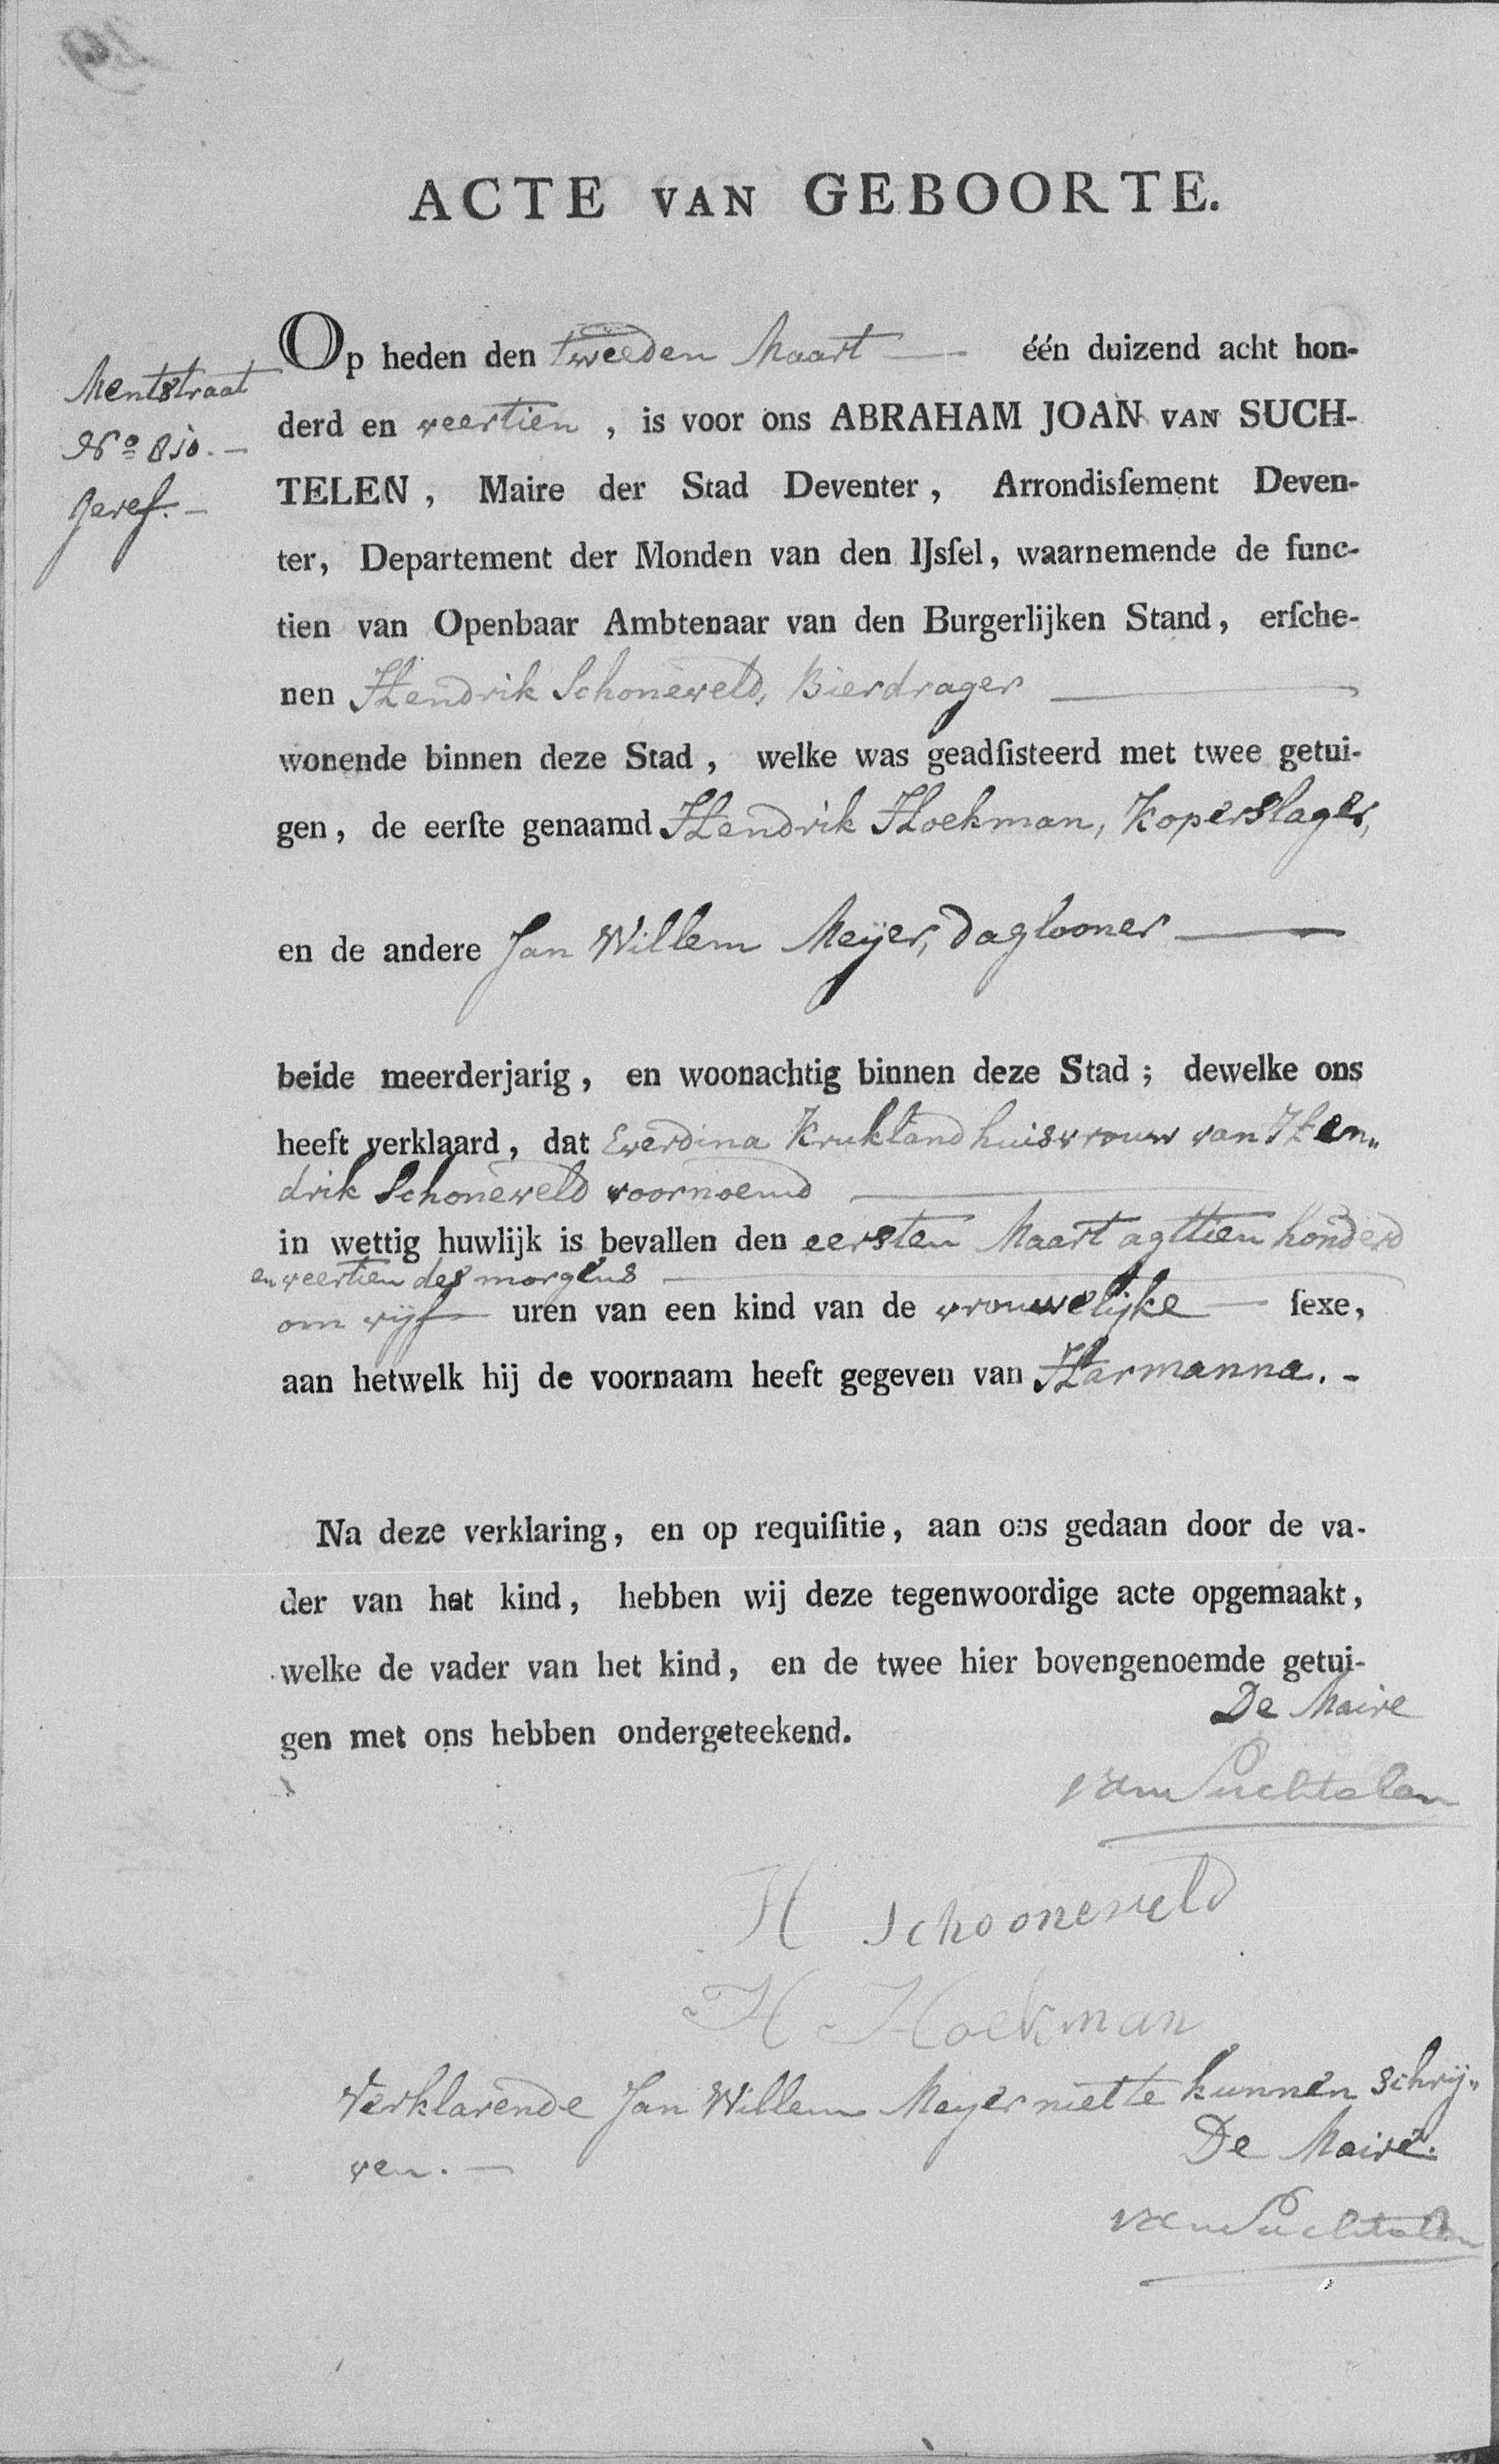 ACTE VAN GEBOORTE.
Mentstraat
No 810. —
geref. —
Op heden den tweeden Maart — één duizend acht hon-
derd en veertien , is voor ons ABRAHAM JOAN VAN SUCH-
TELEN , Maire der Stad Deventer , Arrondisſement Deven-
ter, Departement der Monden van den IJsſel, waarnemende de func-
tien van Openbaar Ambtenaar van den Burgerlijken Stand, erſche-
nen Hendrik Schoneveld, Bierdrager —
wonende binnen deze Stad , welke was geadſisteerd met twee getui-
gen, de eerſte genaamd Hendrik Hoekman, Koperslager,
en de andere Jan Willem Meijer, daglooner —
beide meerderjarig, en woonachtig binnen deze Stad ; dewelke ons
heeft verklaard, dat Everdina Krukland huisvrouw van Hen„
drik Schoneveld voornoemd —
in wettig huwlijk is bevallen den eersten Maart agttien honderd
en veertien des morgens —
om vijf — uren van een kind van de vrouwelijke — ſexe,
aan hetwelk hij de voornaam heeft gegeven van Harmanna. -
Na deze verklaring, en op requiſitie, aan ons gedaan door de va-
der van het kind, hebben wij deze tegenwoordige acte opgemaakt,
welke de vader van het kind, en de twee hier bovengenoemde getui-
gen met ons hebben ondergeteekend.
De Maire
van Suchtelen
H Schooneveld
H Hoekman
Verklarende Jan Willem Meyer niet te kunnen schrij„
ven. —
De Maire.
van Suchtelen